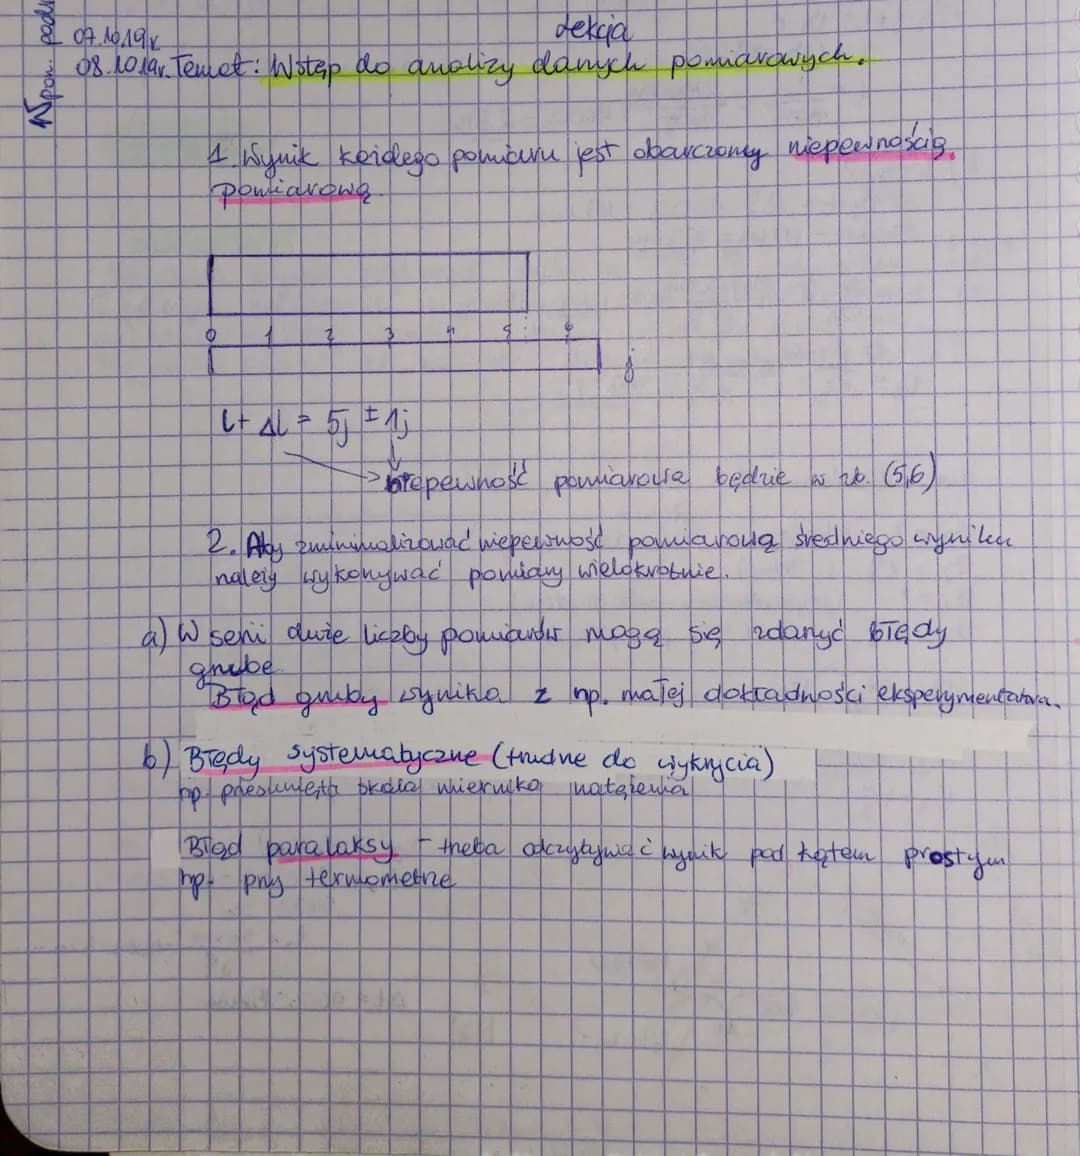 Lekcja
07.10.19r.
08.10.19r. Temat: Wstęp do analizy danych pomiarowych.
1. Wynik każdego pomiaru jest obarczony niepewnością
pomiarową.
0 1 2 3 4 5 6
j
l + Δl = 5j ± 1j
niepewność pomiarowa będzie w zb. (5,6)
2. Aby zminimalizować niepewność pomiarową średniego wyniku
należy wykonywać pomiary wielokrotnie.
a) W serii duże liczby pomiarów mogą się zdarzyć błędy
grube
Błąd gruby wynika z np. małej dokładności eksperymentatora.
b) Błędy systematyczne (trudne do wykrycia)
np. przesunięta skala miernika natężenia
Błąd paralaksy - trzeba odczytywać wynik pod kątem prostym
np. przy termometrze